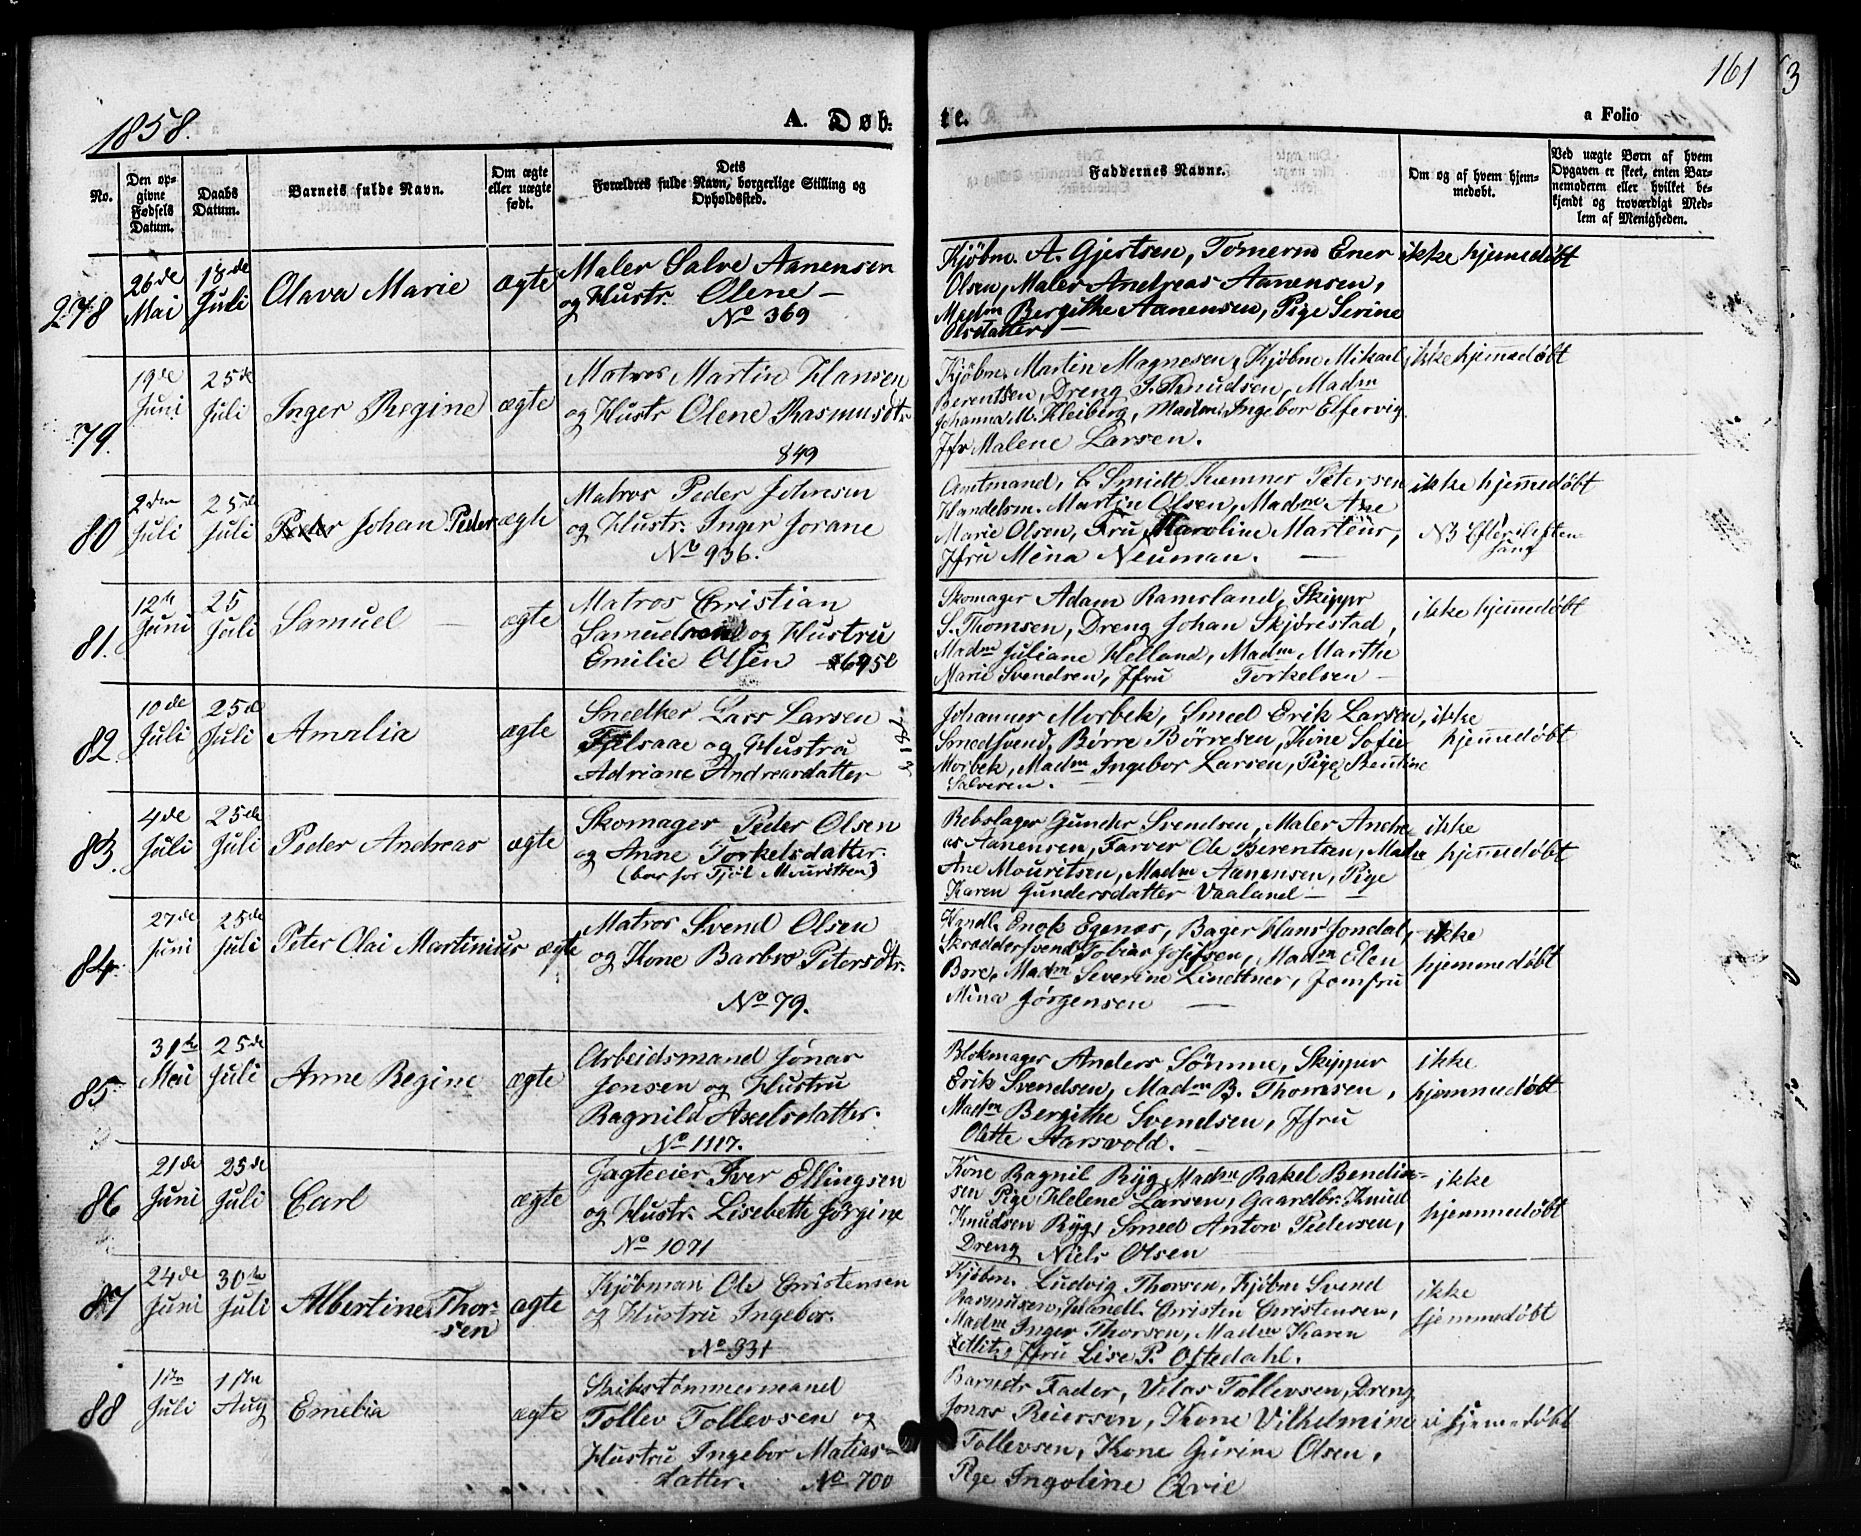 161
3
1858.
A. Døb-
te.
a Folio
No.
Den op-
givne
Fødsels
Datum.
Daabs
Datum.
Barnets fulde Navn.
Om ægte
eller uægte
født.
Dets
Forældres fulde Navn, borgerlige Stilling og
Opholdssted.
Faddernes Navne.
Om og af hvem hjem-
medøbt.
Ved uægte Børn af hvem
Opgaven er skeet, enten Bar-
nemoderen eller hvilket be-
kjendt og troværdigt Med-
lem af Menigheden.
278
26de
Mai
18de
Juli
Olava Marie
ægte
Maler Salve Aanensen
og Hustr. Olene –
No 369
Kjøbm. A. Gjertsen, Tømerm Ener
Olsen, Maler Andreas Aanensen,
Madm Bergithe Aanensen, Pige Serine
Olsdatter –
ikke hjemmedøbt
79.
19de
Juni
25de
Juli
Inger Regine
ægte
Matros Martin Hansen
og Hustr Olene Rasmusdtr
849
Kjøbm. Martin Magnesen, Kjøbm Mikael
Berentsen, Dreng J. Knudsen, Madm
Johanna M. Kleiberg, Madm Ingebor Elfervig
Jfr Malene Larsen.
ikke hjemmedøbt
80
2den
Juli
25de
Juli
Johan Peder
ægte
Matros Peder Johnsen
og Hustr. Inger Jorane
No 936.
Amtmand, C Smidt Kæmner Petersen
Handelsm. Martin Olsen, Madm Ane
Marie Olsen, Fru Karoline Marteus,
Jfru Mina Neuman. –
ikke hjemmedøbt
NB
81.
12te
Juni
25
Juli
Samuel –
ægte
Matros Christian
Samuelsen og Hustru
Emilie Olsen 695
Skomager Adam Ramsland, Skippr
S. Thomsen, Dreng Johan Skjørestad,
Madm Juliane Helland, Madm Marthe
Marie Svendsen, Jfru Torkelsen –
ikke hjemmedøbt
82
10de
Juli
25de
Juli
Amalia
ægte
Snedker Lars Larsen
og Hustru
Adriane Andreasdatter
Johannes Morbek, Smed Erik Larsen,
Smedsvend, Børre Børresen, Kone Sofie
Morbek, Madm Ingebor Larsen, Pige Bentine
Salvesen.
ikke
hjemmedøbt
83.
4de
Juli
25de
Juli
Peder Andreas
ægte
Skomager Peder Olsen
og Anne Torkelsdatter.
(bor for Tjøl Mouritsen)
Rebslager Gunder Svendsen, Maler Andre-
as Aanensen, Farver Ole Berentsen, Madm
Ane Mouritsen, Madm Aanensen, Pige
Karen Gundersdatter Vaaland –
ikke
hjemmedøbt
84.
27de
Juni
25de
Juli
Peter Olai Martinius
ægte
Matros Svend Olsen
og Kone Barbro Petersdtr.
No 79.
Handl. Enok Egenæs, Bager Hans Jondal,
Skrædder Svend Tobias Josefsen, Madm Elen
Bore, Madm Severine Lindtner, Jomfru
Mina Jørgensen –
ikke
hjemmedøbt
85.
31te
Mai
25de
Juli
Anne Regine
ægte
Arbeidsmand Jonas
Jonsen og Hustru
Ragnild Axelsdatter.
No 1117.
Blokmager Anders Sømme, Skipper
Erik Svendsen, Madm B. Thomsen,
Madm Bergithe Svendsen, Jfru
Olette Aarsvold.
ikke
hjemmedøbt
86
21de
Juni
25de
Juli
Carl
ægte
Jagteeier Iver Ellingsen
og Hustr. Lisebeth Jørgine
No 1091
Kone Ragnil Ryg, Madm Rakel Bendik-
sen Pige Helene Larsen, Gaardbr. Knud
Knudsen Ryg, Smed Anton Pedersen,
Dreng Niels Olsen
ikke
hjemmedøbt
87
24de
Juni
30te
Juli
Albertine Thor-
sen
ægte
Kjøbman Ole Christensen
og Hustru Ingebor.
No 331
Kjøbm. Ludvig Thorsen, Kjøbm Svend
Rasmusen, Handl. Christen Christensen,
Madm Inger Thorsen, Madm Karen
Zetlitz, Jfru Lise P. Oftedahl.
ikke
hjemmedøbt
88
1ste
Juli
1ste
Aug
Emelia
ægte
Skibstømmermand
Tollev Tollevsen og
Hustru Ingebor Matias-
datter. No 700
Barnets Fader, Velas Tollevsen, Dreng
Jonas Reiersen, Kone Vilhelmine
Tollevsen, Kone Gurine Olsen,
Pige Ingoline Qvie
i hjemmedøbt